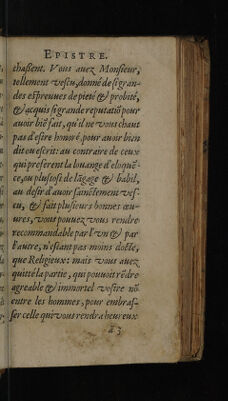 EPISTRE.
chassent. Vous auez Monsieur,
tellement vescu, donné de si gran-
des espreuues de pieté & probité,
& acquis si grande reputatiõ pour
auoir biẽ fait, qu'il ne vous chaut
pas d'estre honoré, pour auoir bien
dit ou escrit: au contraire de ceux
qui preferent la louange d'eloquẽ-
ce, ou plustost de lãgage & babil,
au desir d'auoir sainctement ves-
cu, & fait plusieurs bonnes œu-
ures, vous pouuez vous rendre
recommandable par l'vn & par
l'autre, n'estant pas moins docte,
que Religieux: mais vous auez
quitté la partie, qui pouuoit rẽdre
agreable & immortel vostre nõ
entre les hommes, pour embras-
ser celle qui vous rendra heureux
a 3